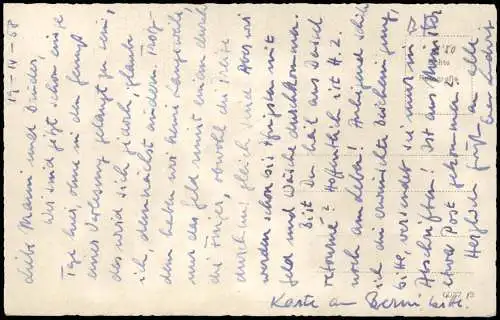 19-14-58
Liebe Mami und Brüder,
Wir sind jetzt schon einige
Tage hier, ohne in den Genuß
einer Vorlesung gelangt zu sein,
das wird sich jedoch, glaube
ich, demnächst ändern. Trotz-
dem hatten wir keine Langeweile,
nur das Geld rinnt einem durch
die Finger, obwohl die Preise
durchweg gleich sind. Aber wir
werden schon bis Pfingsten mit
Geld und Wäsche durchkommen.
Bist Du heil aus
retourné? Hoffentlich ist H. 2.
noch am Leben! Anliegend schicke
ich die erwünschte Bescheinigung,
bitte, versendet sie nur in
Abschriften! Ist aus Münster
etwas Post gekommen?
Herzliche Grüße an alle
Karte an bitte.